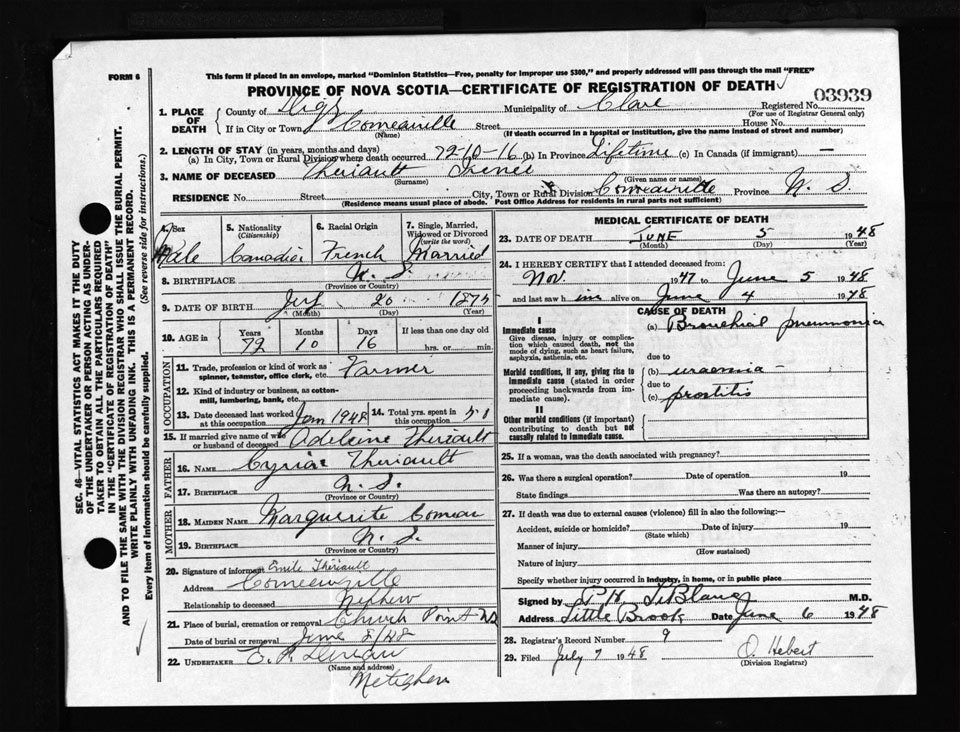 FORM 6
This form if placed in an envelope, marked "Dominion Statistics—Free, penalty for improper use $300," and properly addressed will pass through the mail "FREE"
PROVINCE OF NOVA SCOTIA—CERTIFICATE OF REGISTRATION OF DEATH
03939
1. PLACE OF DEATH
County of Digby Municipality of Clare Registered No.
(For use of Registrar General only)
If in City or Town Comeauville Street House No.
(Name) (If death occurred in a hospital or institution, give the name instead of street and number)
2. LENGTH OF STAY (in years, months and days)
(a) In City, Town or Rural Division where death occurred 72-10-16 (b) In Province Lifetime (c) In Canada (if immigrant) —
3. NAME OF DECEASED Theriault Irenee
(Surname) (Given name or names)
RESIDENCE No. Street City, Town or Rural Division Comeauville Province N. S.
(Residence means usual place of abode. Post Office Address for residents in rural parts not sufficient)
4. Sex
Male
5. Nationality
(Citizenship)
6. Racial Origin
French
7. Single, Married, Widowed or Divorced
(write the word)
Married
8. BIRTHPLACE N. S.
(Province or Country)
9. DATE OF BIRTH 20
(Month) (Day) (Year)
10. AGE in
Years Months Days If less than one day old
72 10 16 hrs. or min.
OCCUPATION
11. Trade, profession or kind of work as spinner, teamster, office clerk, etc. Farmer
12. Kind of industry or business, as cotton-mill, lumbering, bank, etc.
13. Date deceased last worked at this occupation Jan 1948 14. Total yrs. spent in this occupation
15. If married give name of wife or husband of deceased Adeleine Theriault
FATHER
16. NAME Theriault
17. BIRTHPLACE N. S.
(Province or Country)
MOTHER
18. MAIDEN NAME Marguerite Comeau
19. BIRTHPLACE N. S.
(Province or Country)
20. Signature of informant Emile Theriault
Address Comeauville
Relationship to deceased Nephew
21. Place of burial, cremation or removal Church Point NS
Date of burial or removal June 8/48
22. UNDERTAKER
(Name and address)
Meteghan
MEDICAL CERTIFICATE OF DEATH
23. DATE OF DEATH JUNE 5 1948
(Month) (Day) (Year)
24. I HEREBY CERTIFY that I attended deceased from:
Nov. 1947 to June 5 1948
and last saw him alive on June 4 1948
CAUSE OF DEATH
I
Immediate cause
Give disease, injury or complication which caused death, not the mode of dying, such as heart failure, asphyxia, asthenia, etc.
(a) Bronchial pneumonia
due to
Morbid conditions, if any, giving rise to immediate cause (stated in order proceeding backwards from immediate cause).
(b) uraemia
due to
(c) prostitis
II
Other morbid conditions (if important) contributing to death but not causally related to immediate cause.
25. If a woman, was the death associated with pregnancy?
26. Was there a surgical operation? Date of operation 19
State findings Was there an autopsy?
27. If death was due to external causes (violence) fill in also the following:—
Accident, suicide or homicide? Date of injury 19
(State which)
Manner of injury
(How sustained)
Nature of injury
Specify whether injury occurred in industry, in home, or in public place
Signed by P. H. LeBlanc M.D.
Address Little Brook Date June 6 1948
28. Registrar's Record Number 9
29. Filed July 7 1948 O. Hebert
(Division Registrar)
SEC. 46—VITAL STATISTICS ACT MAKES IT THE DUTY
OF THE UNDERTAKER OR PERSON ACTING AS UNDER-
TAKER TO OBTAIN ALL THE PARTICULARS REQUIRED
IN THE "CERTIFICATE OF REGISTRATION OF DEATH"
AND TO FILE THE SAME WITH THE DIVISION REGISTRAR WHO SHALL ISSUE THE BURIAL PERMIT.
WRITE PLAINLY WITH UNFADING INK. THIS IS A PERMANENT RECORD.
Every item of information should be carefully supplied. (See reverse side for instructions.)